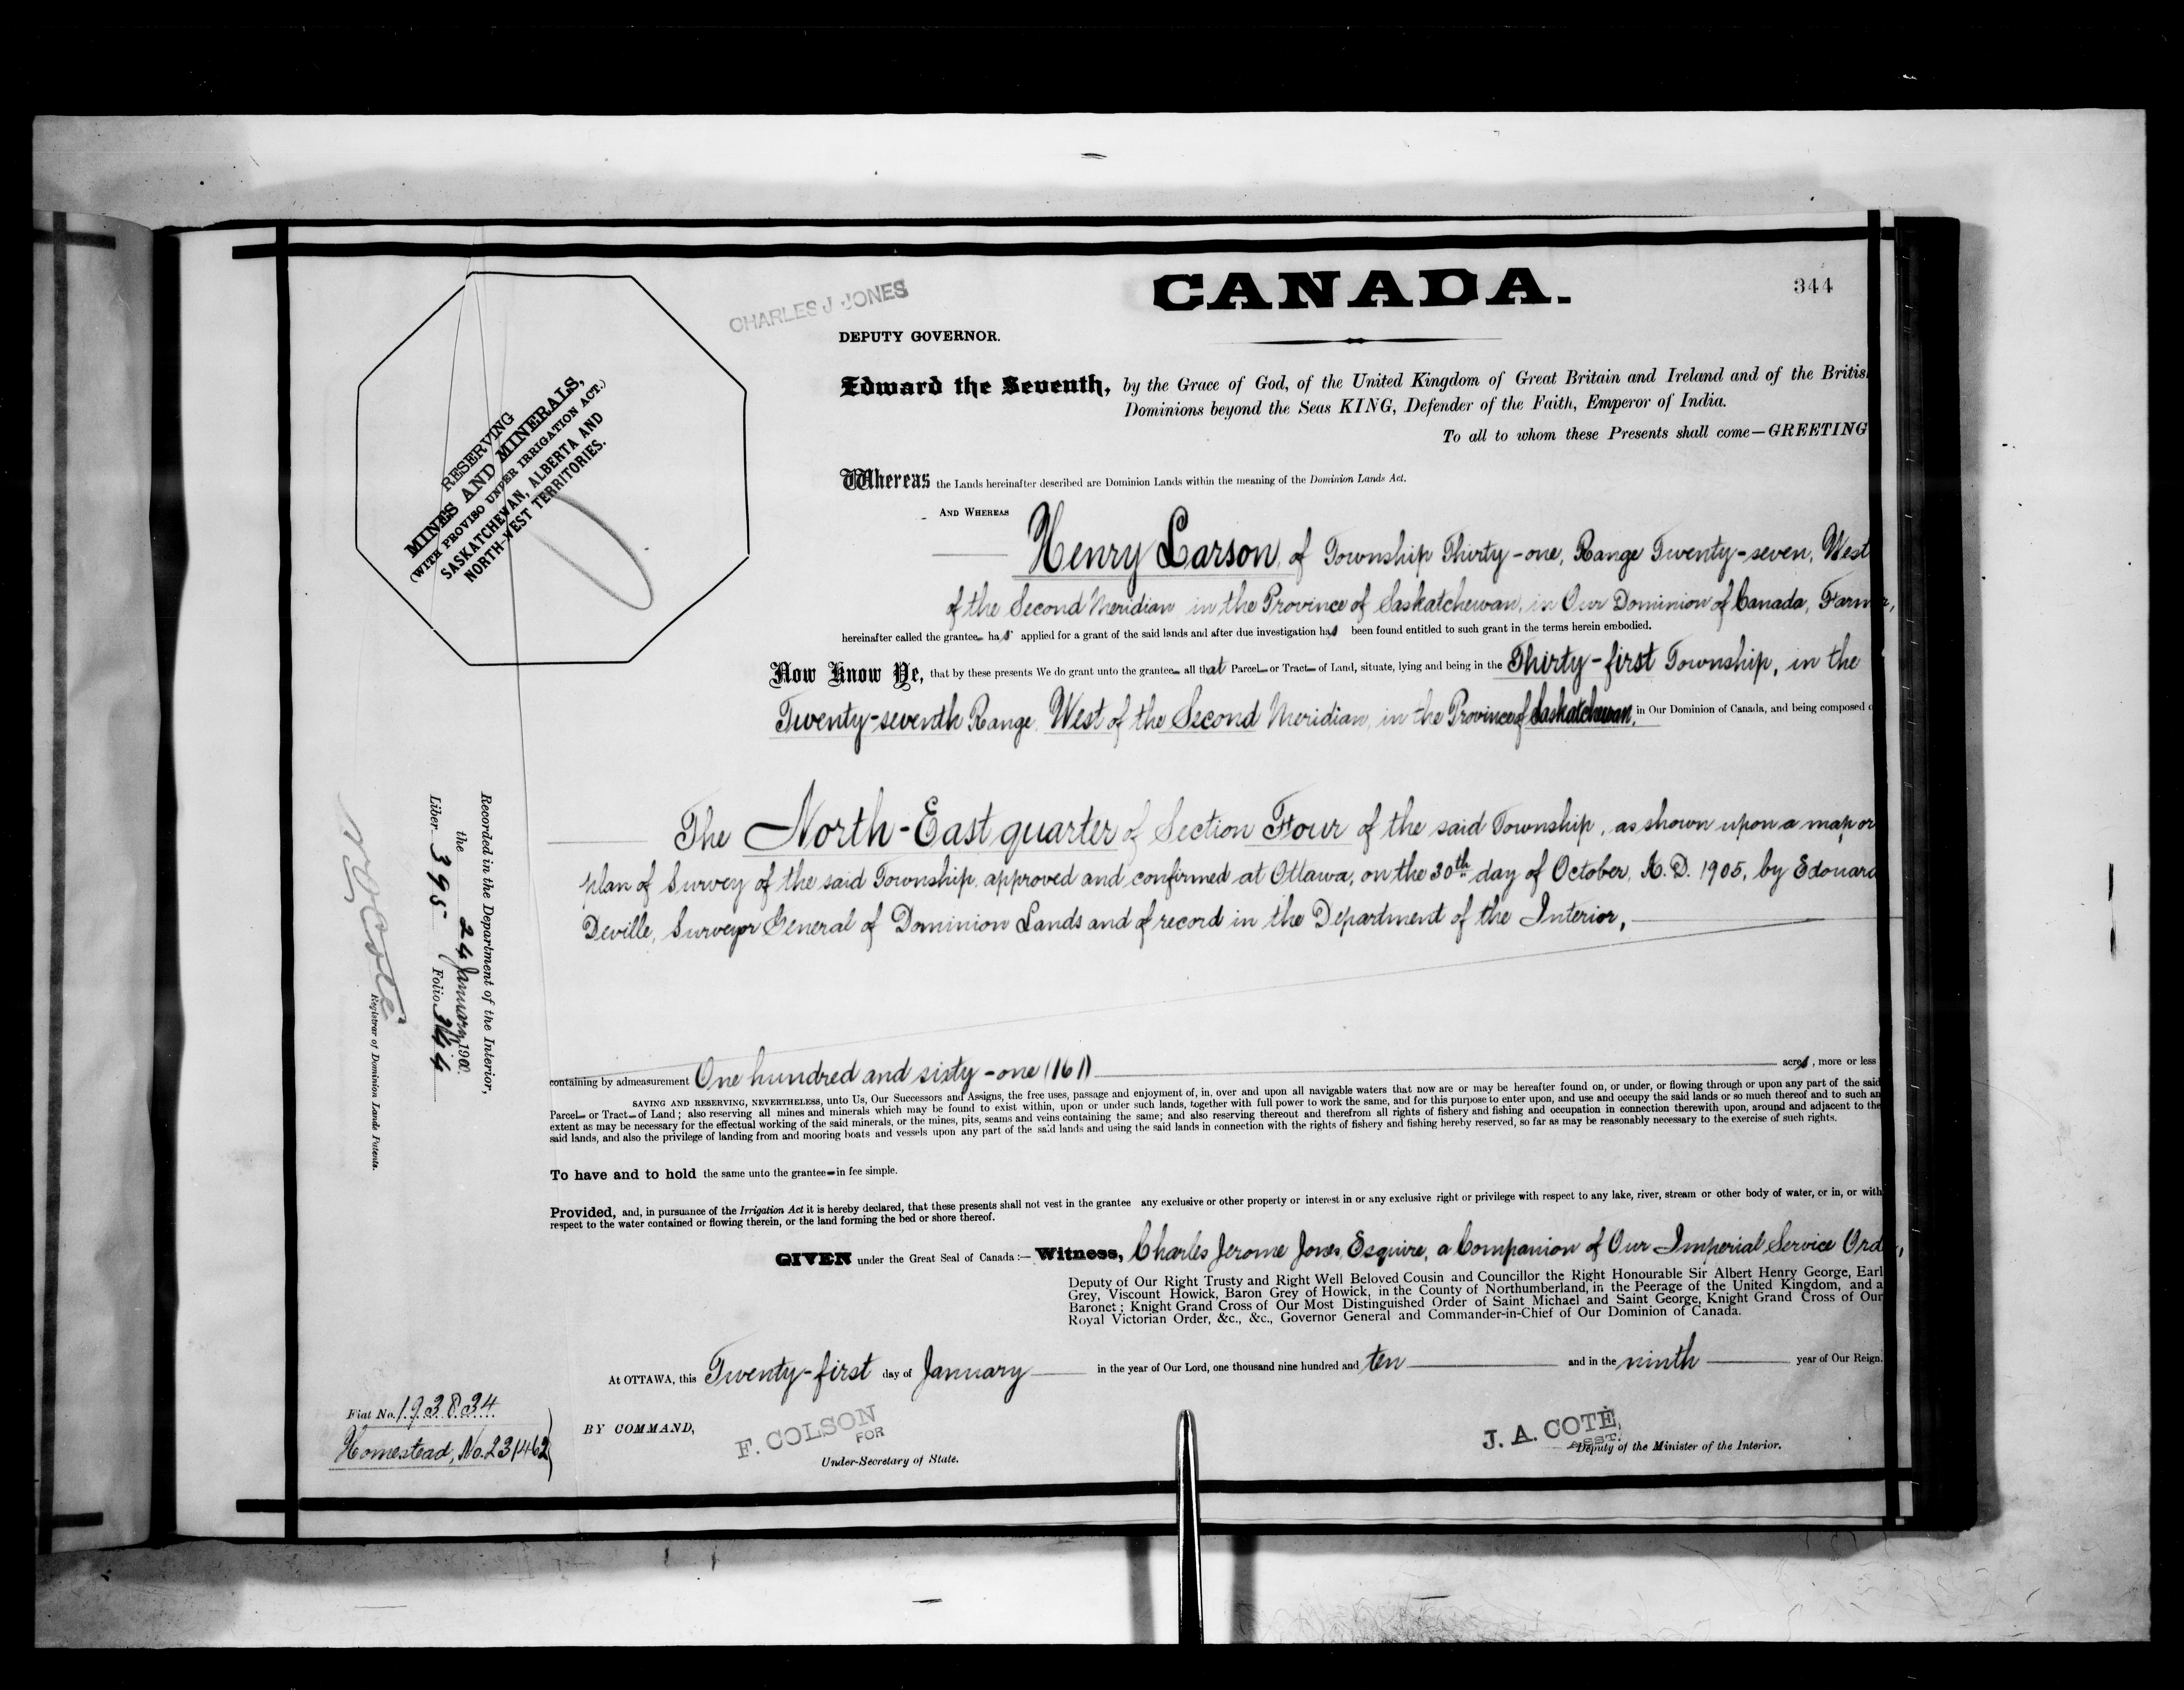 CANADA.
344
CHARLES J JONES
DEPUTY GOVERNOR.
Edward the Seventh, by the Grace of God, of the United Kingdom of Great Britain and Ireland and of the Britis
Dominions beyond the Seas KING, Defender of the Faith, Emperor of India.
To all to whom these Presents shall come—GREETING
RESERVING
MINES AND MINERALS,
(WITH PROVISO UNDER IRRIGATION ACT.)
SASKATCHEWAN, ALBERTA AND
NORTH-WEST TERRITORIES.
Whereas the Lands hereinafter described are Dominion Lands within the meaning of the Dominion Lands Act.
AND WHEREAS
Henry Larson, of Township Thirty-one, Range Twenty-seven, West
of the Second Meridian in the Province of Saskatchewan, in Our Dominion of Canada, Farmer,
hereinafter called the grantee has applied for a grant of the said lands and after due investigation has been found entitled to such grant in the terms herein embodied.
Now Know Ye, that by these presents We do grant unto the grantee all that Parcel or Tract of Land, situate, lying and being in the Thirty-first Township, in the
Twenty-seventh Range, West of the Second Meridian, in the Province of Saskatchewan, in Our Dominion of Canada, and being composed o
The North-East quarter of Section Four of the said Township, as shown upon a map or
plan of Survey of the said Township, approved and confirmed at Ottawa, on the 30th day of October, A.D. 1905, by Edouard
Deville, Surveyor General of Dominion Lands and of record in the Department of the Interior,
containing by admeasurement One hundred and sixty-one (161) acres, more or less
SAVING AND RESERVING, NEVERTHELESS, unto Us, Our Successors and Assigns, the free uses, passage and enjoyment of, in, over and upon all navigable waters that now are or may be hereafter found on, or under, or flowing through or upon any part of the said
Parcel or Tract of Land; also reserving all mines and minerals which may be found to exist within, upon or under such lands, together with full power to work the same, and for this purpose to enter upon, and use and occupy the said lands or so much thereof and to such an
extent as may be necessary for the effectual working of the said minerals, or the mines, pits, seams and veins containing the same; and also reserving thereout and therefrom all rights of fishery and fishing and occupation in connection therewith upon, around and adjacent to the
said lands, and also the privilege of landing from and mooring boats and vessels upon any part of the said lands and using the said lands in connection with the rights of fishery and fishing hereby reserved, so far as may be reasonably necessary to the exercise of such rights.
To have and to hold the same unto the grantee in fee simple.
Provided, and, in pursuance of the Irrigation Act it is hereby declared, that these presents shall not vest in the grantee any exclusive or other property or interest in or any exclusive right or privilege with respect to any lake, river, stream or other body of water, or in, or with
respect to the water contained or flowing therein, or the land forming the bed or shore thereof.
GIVEN under the Great Seal of Canada:— Witness, Charles Jerome Jones, Esquire, a Companion of Our Imperial Service Ord
Deputy of Our Right Trusty and Right Well Beloved Cousin and Councillor the Right Honourable Sir Albert Henry George, Earl
Grey, Viscount Howick, Baron Grey of Howick, in the County of Northumberland, in the Peerage of the United Kingdom, and a
Baronet; Knight Grand Cross of Our Most Distinguished Order of Saint Michael and Saint George, Knight Grand Cross of Our
Royal Victorian Order, &c., &c., Governor General and Commander-in-Chief of Our Dominion of Canada.
At OTTAWA, this Twenty-first day of January in the year of Our Lord, one thousand nine hundred and ten and in the ninth year of Our Reign.
BY COMMAND,
F. COLSON
FOR
Under-Secretary of State.
J. A. COTÉ,
ASST.
Deputy of the Minister of the Interior.
Recorded in the Department of the Interior,
the 24 January, 1900.
Liber 395 Folio 344
N O Coté
Registrar of Dominion Lands Patents.
Fiat No. 193834
Homestead, No. 231462